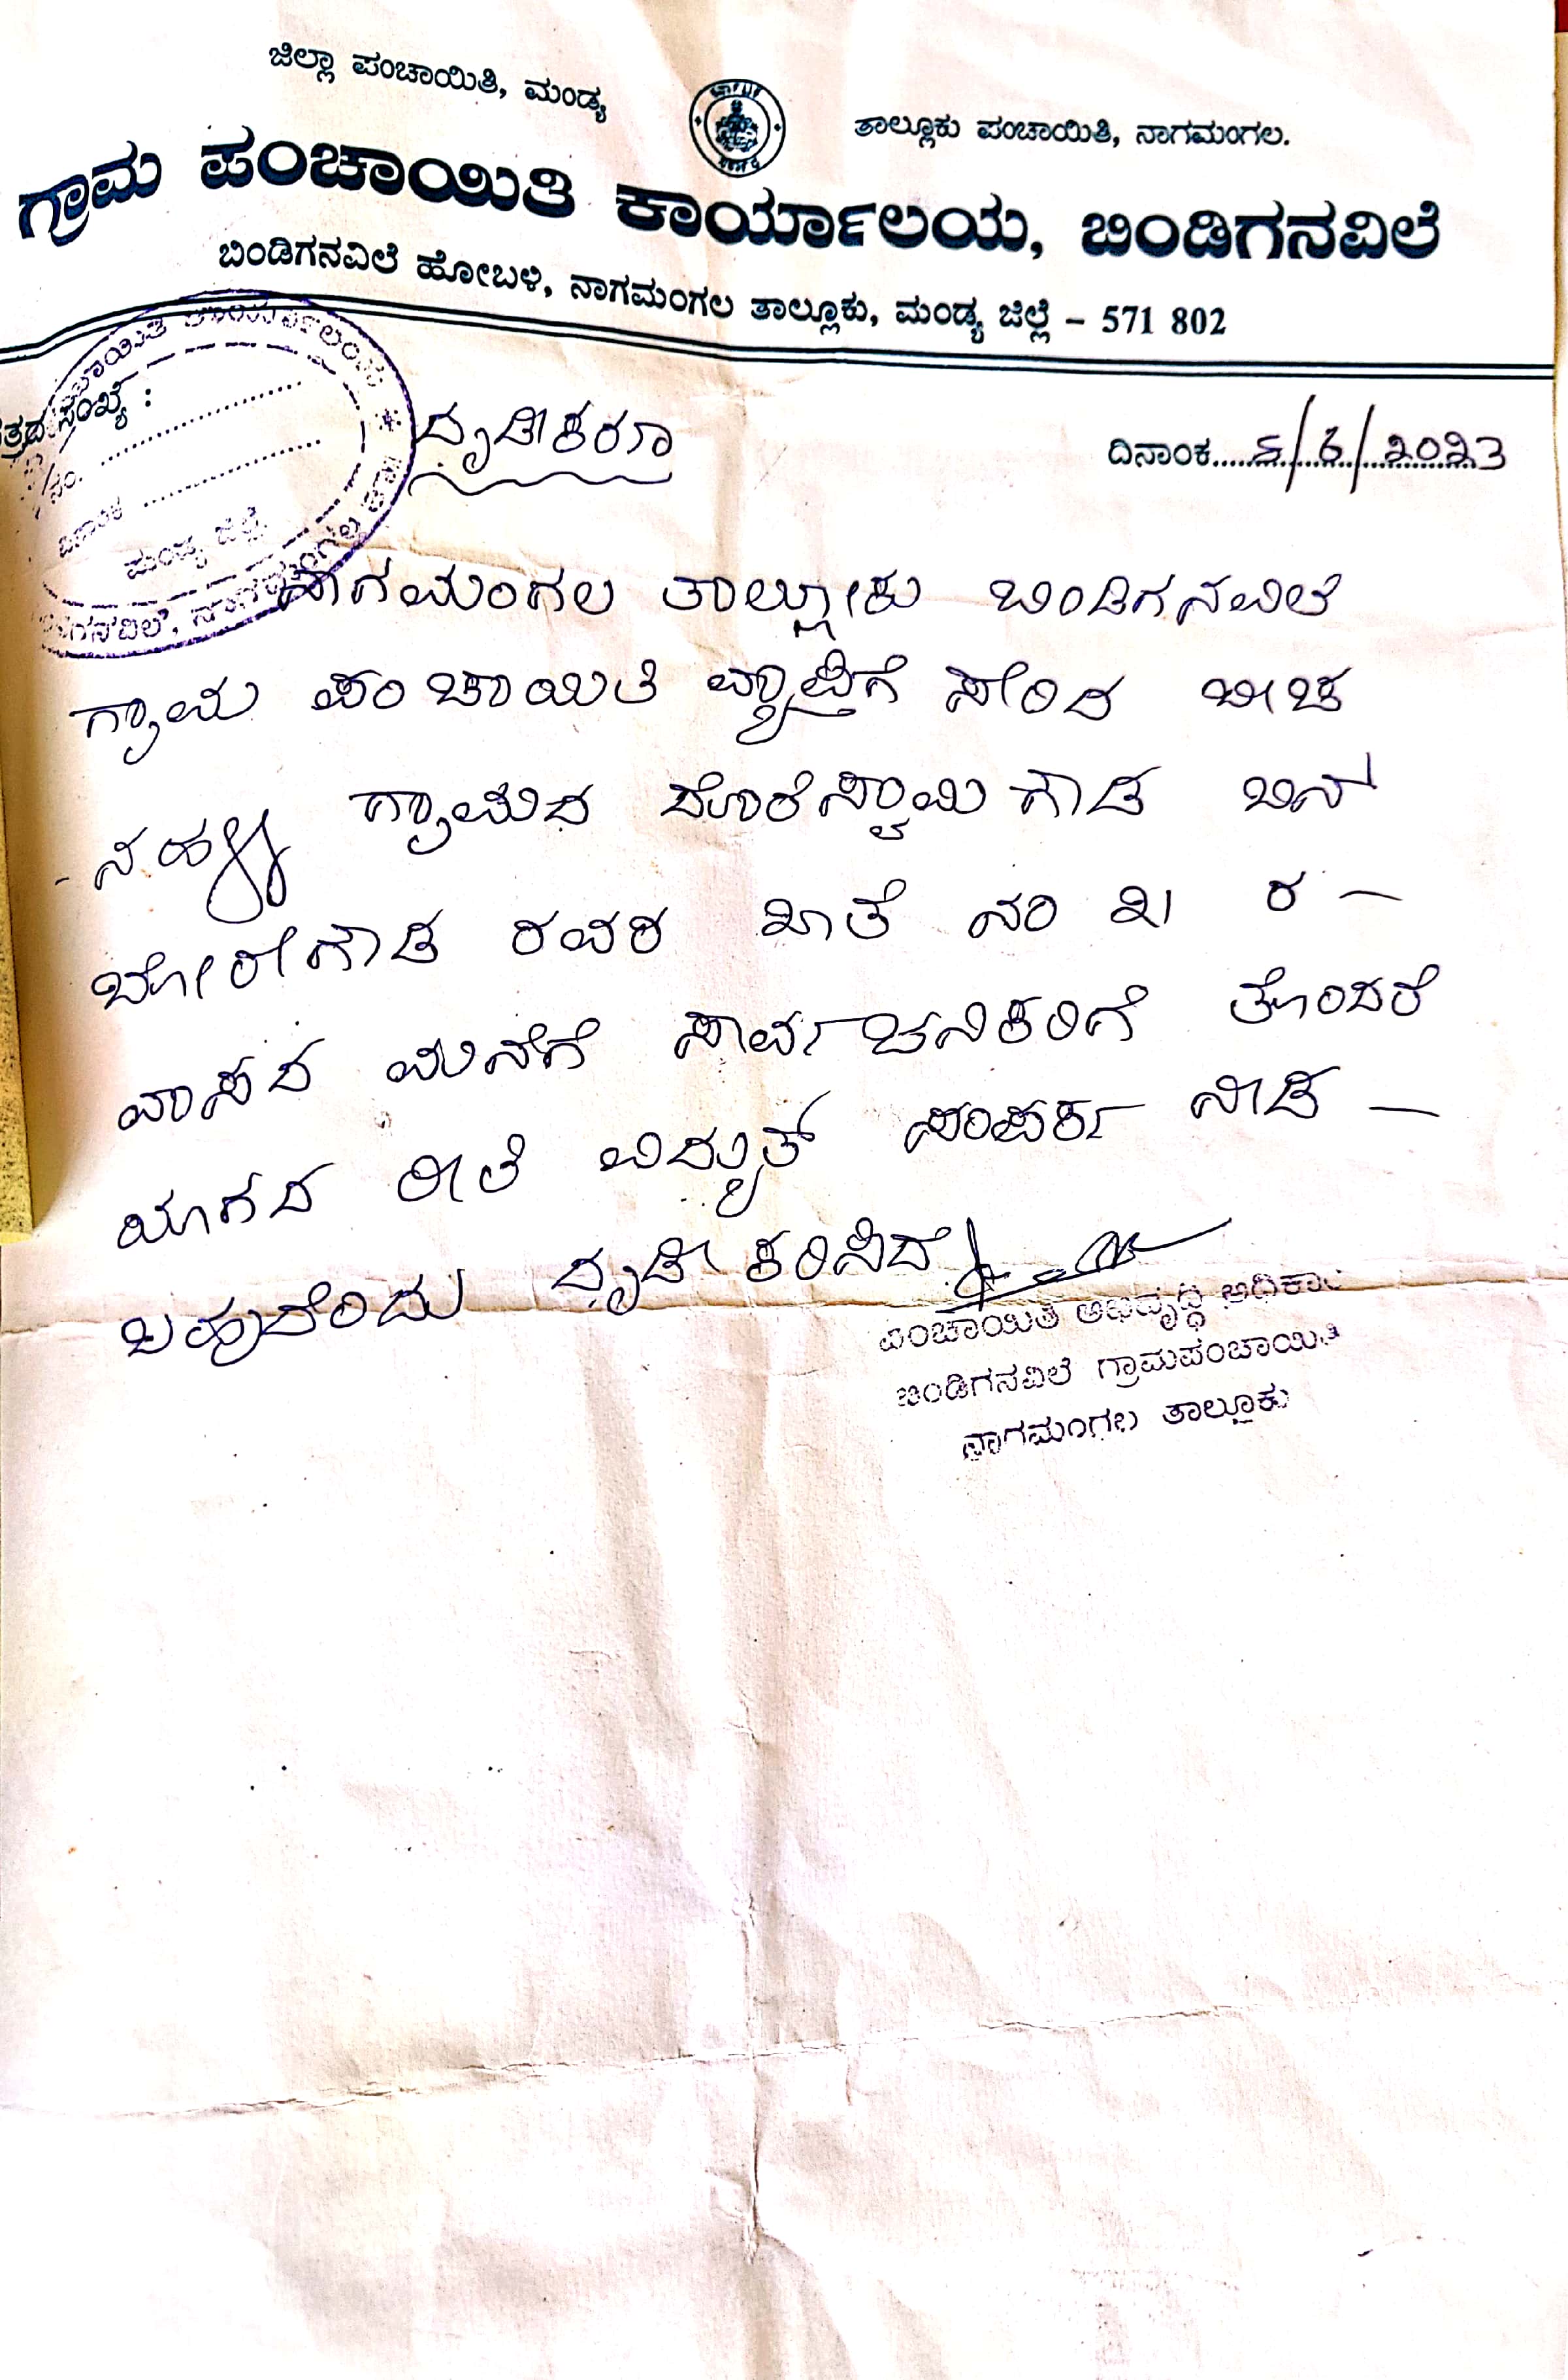 ಜಿಲ್ಲಾ ಪಂಚಾಯಿತಿ, ಮಂಡ್ಯ
ತಾಲ್ಲೂಕು ಪಂಚಾಯಿತಿ, ನಾಗಮಂಗಲ.
ಗ್ರಾಮ ಪಂಚಾಯಿತಿ ಕಾರ್ಯಾಲಯ, ಬಿಂಡಿಗನವಿಲೆ
ಬಿಂಡಿಗನವಿಲೆ ಹೋಬಳಿ, ನಾಗಮಂಗಲ ತಾಲ್ಲೂಕು, ಮಂಡ್ಯ ಜಿಲ್ಲೆ – 571 802
ಸಂಖ್ಯೆ :
ನಂ.
ದಿನಾಂಕ
ಮಂಡ್ಯ ಜಿಲ್ಲೆ
ದೃಡೀಕರಣ
ದಿನಾಂಕ 5/6/2023
ನಾಗಮಂಗಲ ತಾಲ್ಲೂಕು ಬಿಂಡಿಗನವಿಲೆ
ಗ್ರಾಮ ಪಂಚಾಯಿತಿ ವ್ಯಾಪ್ತಿಗೆ ಸೇರಿದ ಬೀಚ
ನಹಳ್ಳಿ ಗ್ರಾಮದ ದೊರೆಸ್ವಾಮಿಗೌಡ ಬಿನ್
ಬೋರೇಗೌಡ ರವರ ಖಾತೆ ನಂ ರ –
ವಾಸದ ಮನೆಗೆ ಸಾರ್ವಜನಿಕರಿಗೆ ತೊಂದರೆ
ಯಾಗದ ರೀತಿ ವಿದ್ಯುತ್ ಸಂಪರ್ಕ ನೀಡ –
ಬಹುದೆಂದು ದೃಡೀಕರಿಸಿದೆ
ಪಂಚಾಯಿತಿ ಅಭಿವೃದ್ಧಿ ಅಧಿಕಾರಿ
ಬಿಂಡಿಗನವಿಲೆ ಗ್ರಾಮಪಂಚಾಯಿತಿ
ನಾಗಮಂಗಲ ತಾಲ್ಲೂಕು